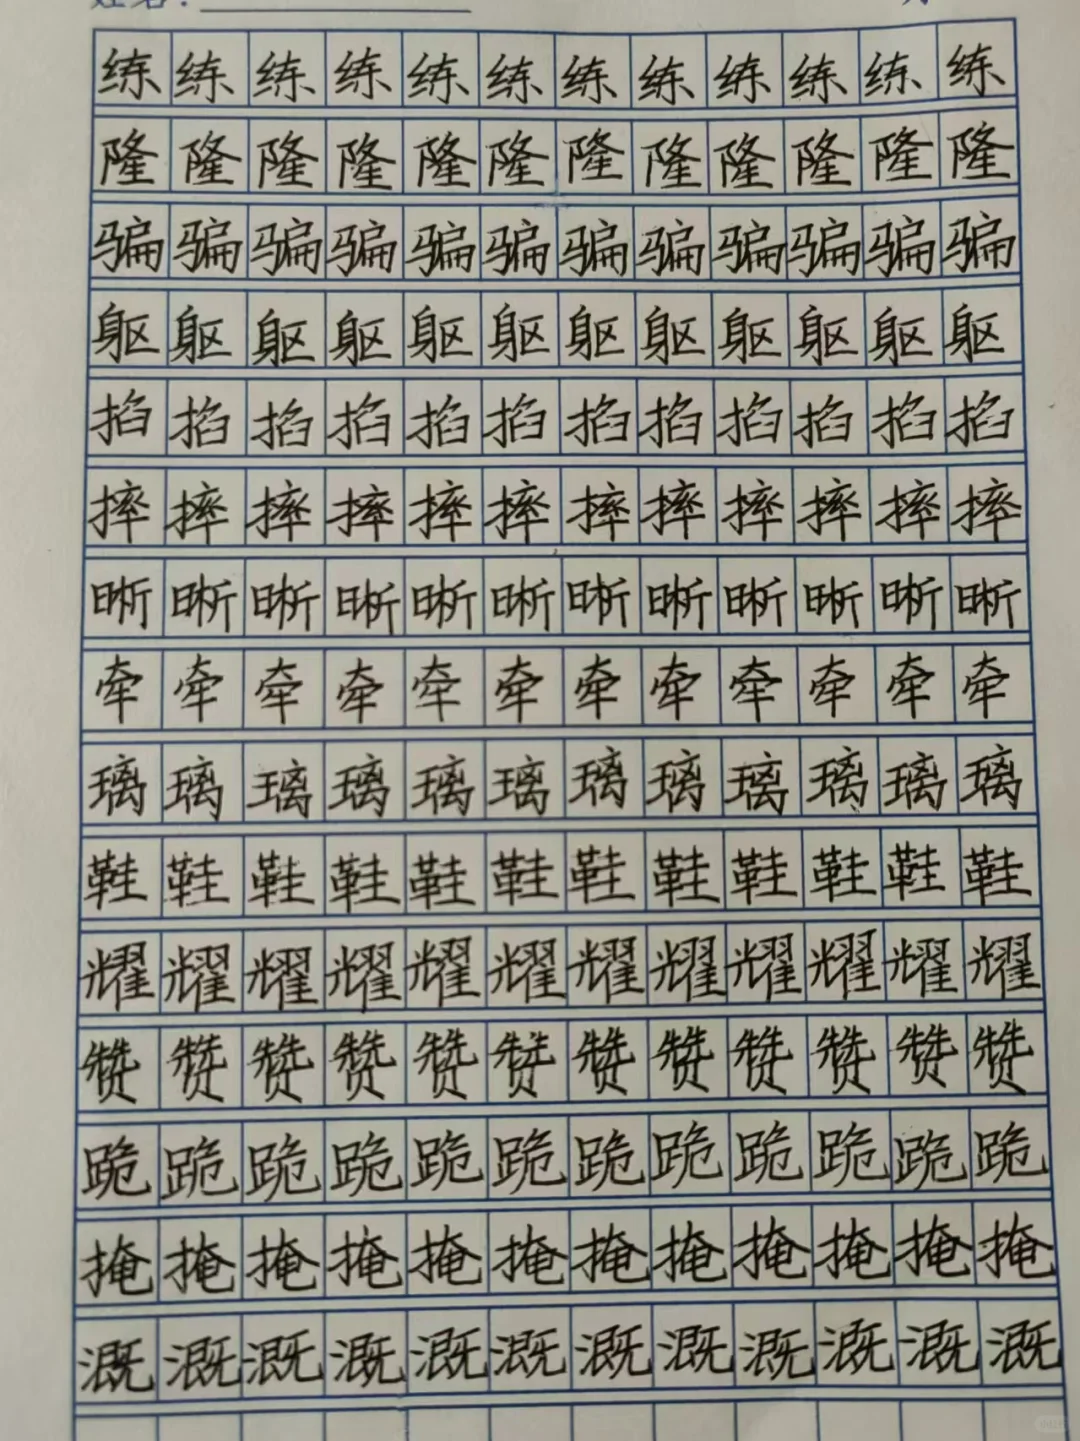 姓名：
练练练练练练练练练练练练
隆隆隆隆隆隆隆隆隆隆隆隆
骗骗骗骗骗骗骗骗骗骗骗骗
躯躯躯躯躯躯躯躯躯躯躯躯
掐掐掐掐掐掐掐掐掐掐掐掐
摔摔摔摔摔摔摔摔摔摔摔摔
晰晰晰晰晰晰晰晰晰晰晰晰
牵牵牵牵牵牵牵牵牵牵牵牵
璃璃璃璃璃璃璃璃璃璃璃璃
鞋鞋鞋鞋鞋鞋鞋鞋鞋鞋鞋鞋
耀耀耀耀耀耀耀耀耀耀耀耀
赞赞赞赞赞赞赞赞赞赞赞赞
跪跪跪跪跪跪跪跪跪跪跪跪
掩掩掩掩掩掩掩掩掩掩掩掩
溉溉溉溉溉溉溉溉溉溉溉溉